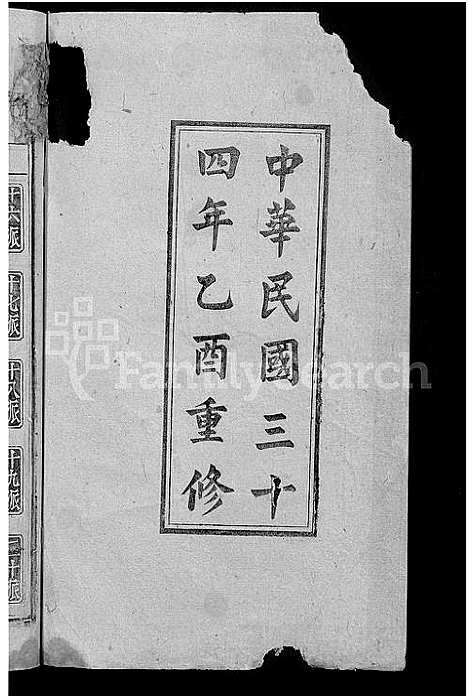 中華民國三十
四年乙酉重修
十六派
十七派
十八派
十九派
二十派
FamilySearch